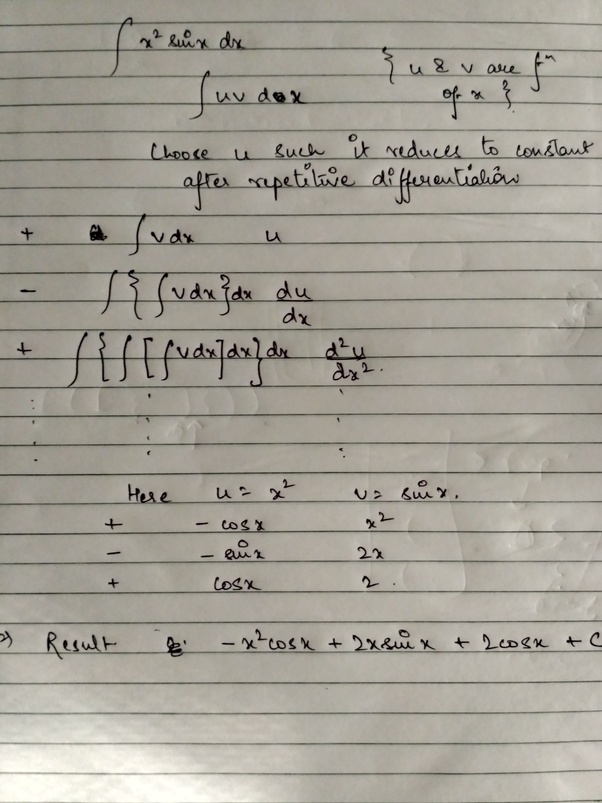 ∫ x² sinx dx
∫ uv dx { u & v are fⁿ of x }
Choose u such it reduces to constant
after repetitive differentiation
+ ∫ vdx u
− ∫ { ∫ vdx } dx du/dx
+ ∫ { ∫ [ ∫ vdx ] dx } dx d²u/dx².
Here u = x² v = sinx.
+ - cosx x²
− - sinx 2x
+ cosx 2.
Result - x²cosx + 2xsinx + 2cosx + C